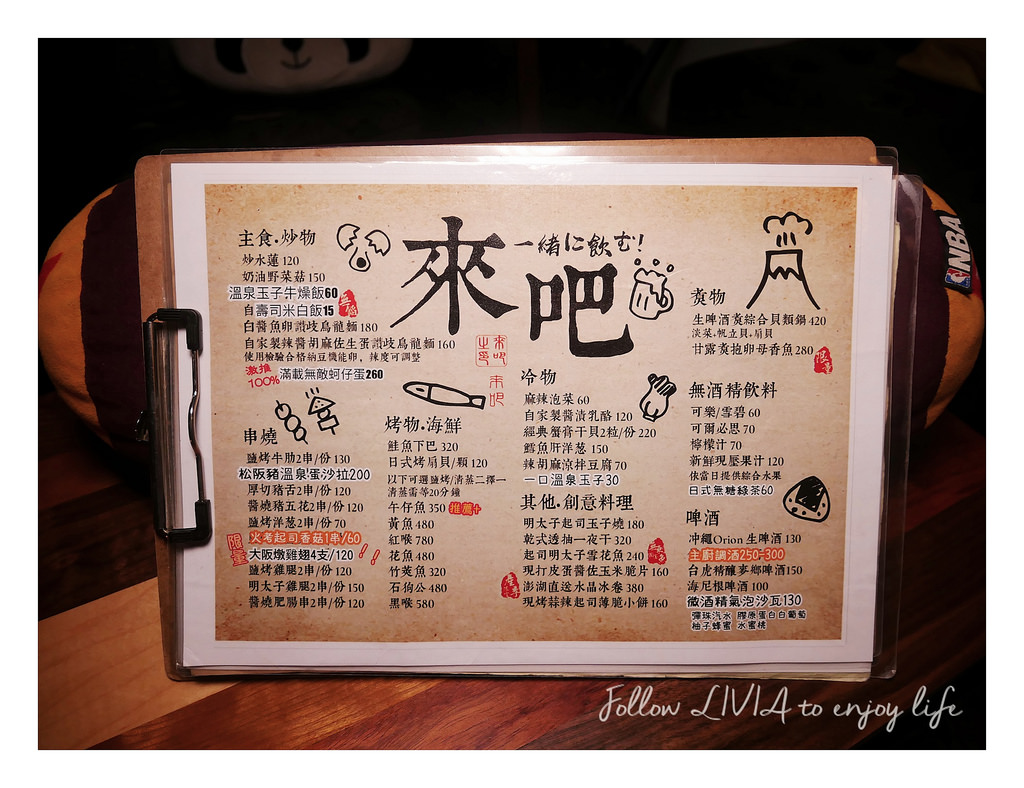 來吧
一緒に飲む!
主食.炒物
炒水蓮 120
奶油野菜菇 150
溫泉玉子牛燥飯60
自壽司米白飯15
白醬魚卵讚歧烏龍麵 180
自家製辣醬胡麻佐生蛋讚歧烏龍麵 160
使用檢驗合格納豆機能卵，辣度可調整
激推
100%
滿載無敵蚵仔蛋260
串燒
鹽烤牛肋2串/份 130
松阪豬溫泉蛋沙拉200
厚切豬舌2串/份 120
醬燒豬五花2串/份 120
鹽烤洋蔥2串/份 70
限量
火考起司香菇1串/60
大阪燉雞翅4支/120
鹽烤雞腿2串/份 120
明太子雞腿2串/份 150
醬燒肥腸串2串/份 120
烤物.海鮮
鮭魚下巴 320
日式烤扇貝/顆 120
以下可選鹽烤/清蒸二擇一
清蒸需等20分鐘
午仔魚 350 推薦+
黃魚 480
紅喉 780
花魚 480
竹莢魚 320
石狗公 480
黑喉 580
冷物
麻辣泡菜 60
自家製醬漬乳酪 120
經典蟹膏干貝2粒/份 220
鱈魚肝洋蔥 150
辣胡麻涼拌豆腐 70
一口溫泉玉子30
其他.創意料理
明太子起司玉子燒 180
乾式透抽一夜干 320
起司明太子雪花魚 240
現打皮蛋醬佐玉米脆片 160
澎湖直送水晶冰卷 380
現烤蒜辣起司薄脆小餅 160
煮物
生啤酒煮綜合貝類鍋 420
淡菜.帆立貝.扇貝
甘露煮抱卵母香魚 280
無酒精飲料
可樂/雪碧 60
可爾必思 70
檸檬汁 70
新鮮現壓果汁 120
依當日提供綜合水果
日式無糖綠茶60
啤酒
沖繩Orion 生啤酒 130
主廚調酒250-300
台虎精釀麥鄉啤酒150
海尼根啤酒 100
微酒精氣泡沙瓦130
彈珠汽水 膠原蛋白白葡萄
柚子蜂蜜 水蜜桃
NBA
Follow LIVIA to enjoy life